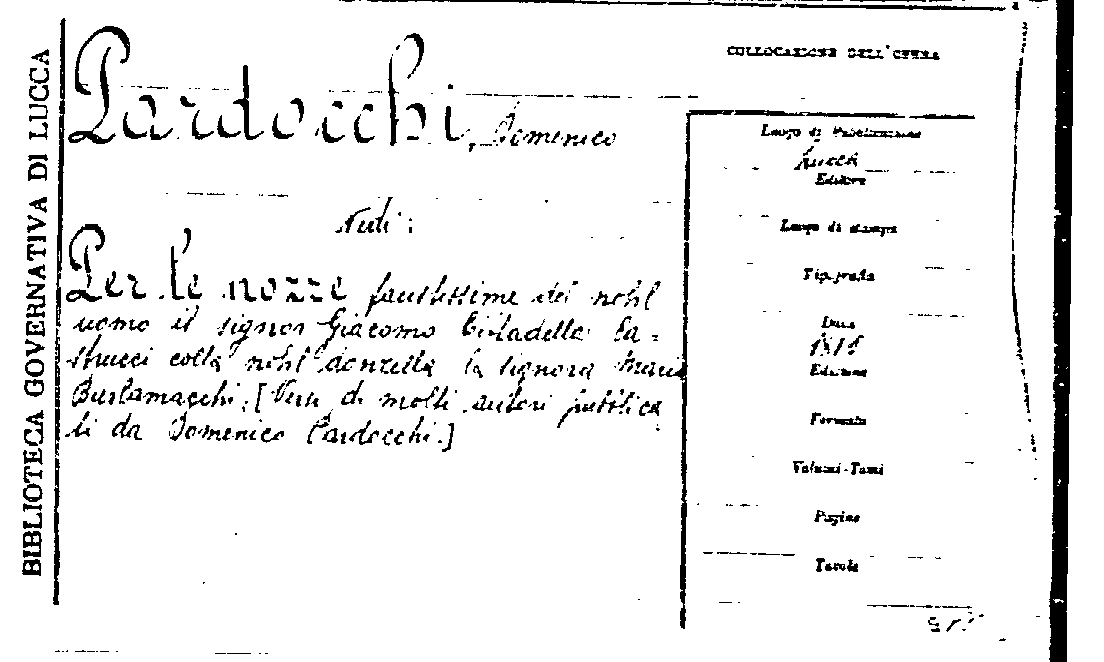 BIBLIOTECA GOVERNATIVA DI LUCCA
Pardocchi, Domenico
Vedi:
Per le nozze faustissime del nobl
uomo il signor Giacomo Cittadella Ca=
strucci colla nobl donzella la signora Maria
Burlamacchi. [Versi di molti autori pubblica
ti da Domenico Pardocchi.]
COLLOCAZIONE DELL'OPERA
Luogo di Pubblicazione
Lucca
Editore
Luogo di stampa
Tipografia
Data
Edizione
Formato
Volumi-Tomi
Pagine
Tavole